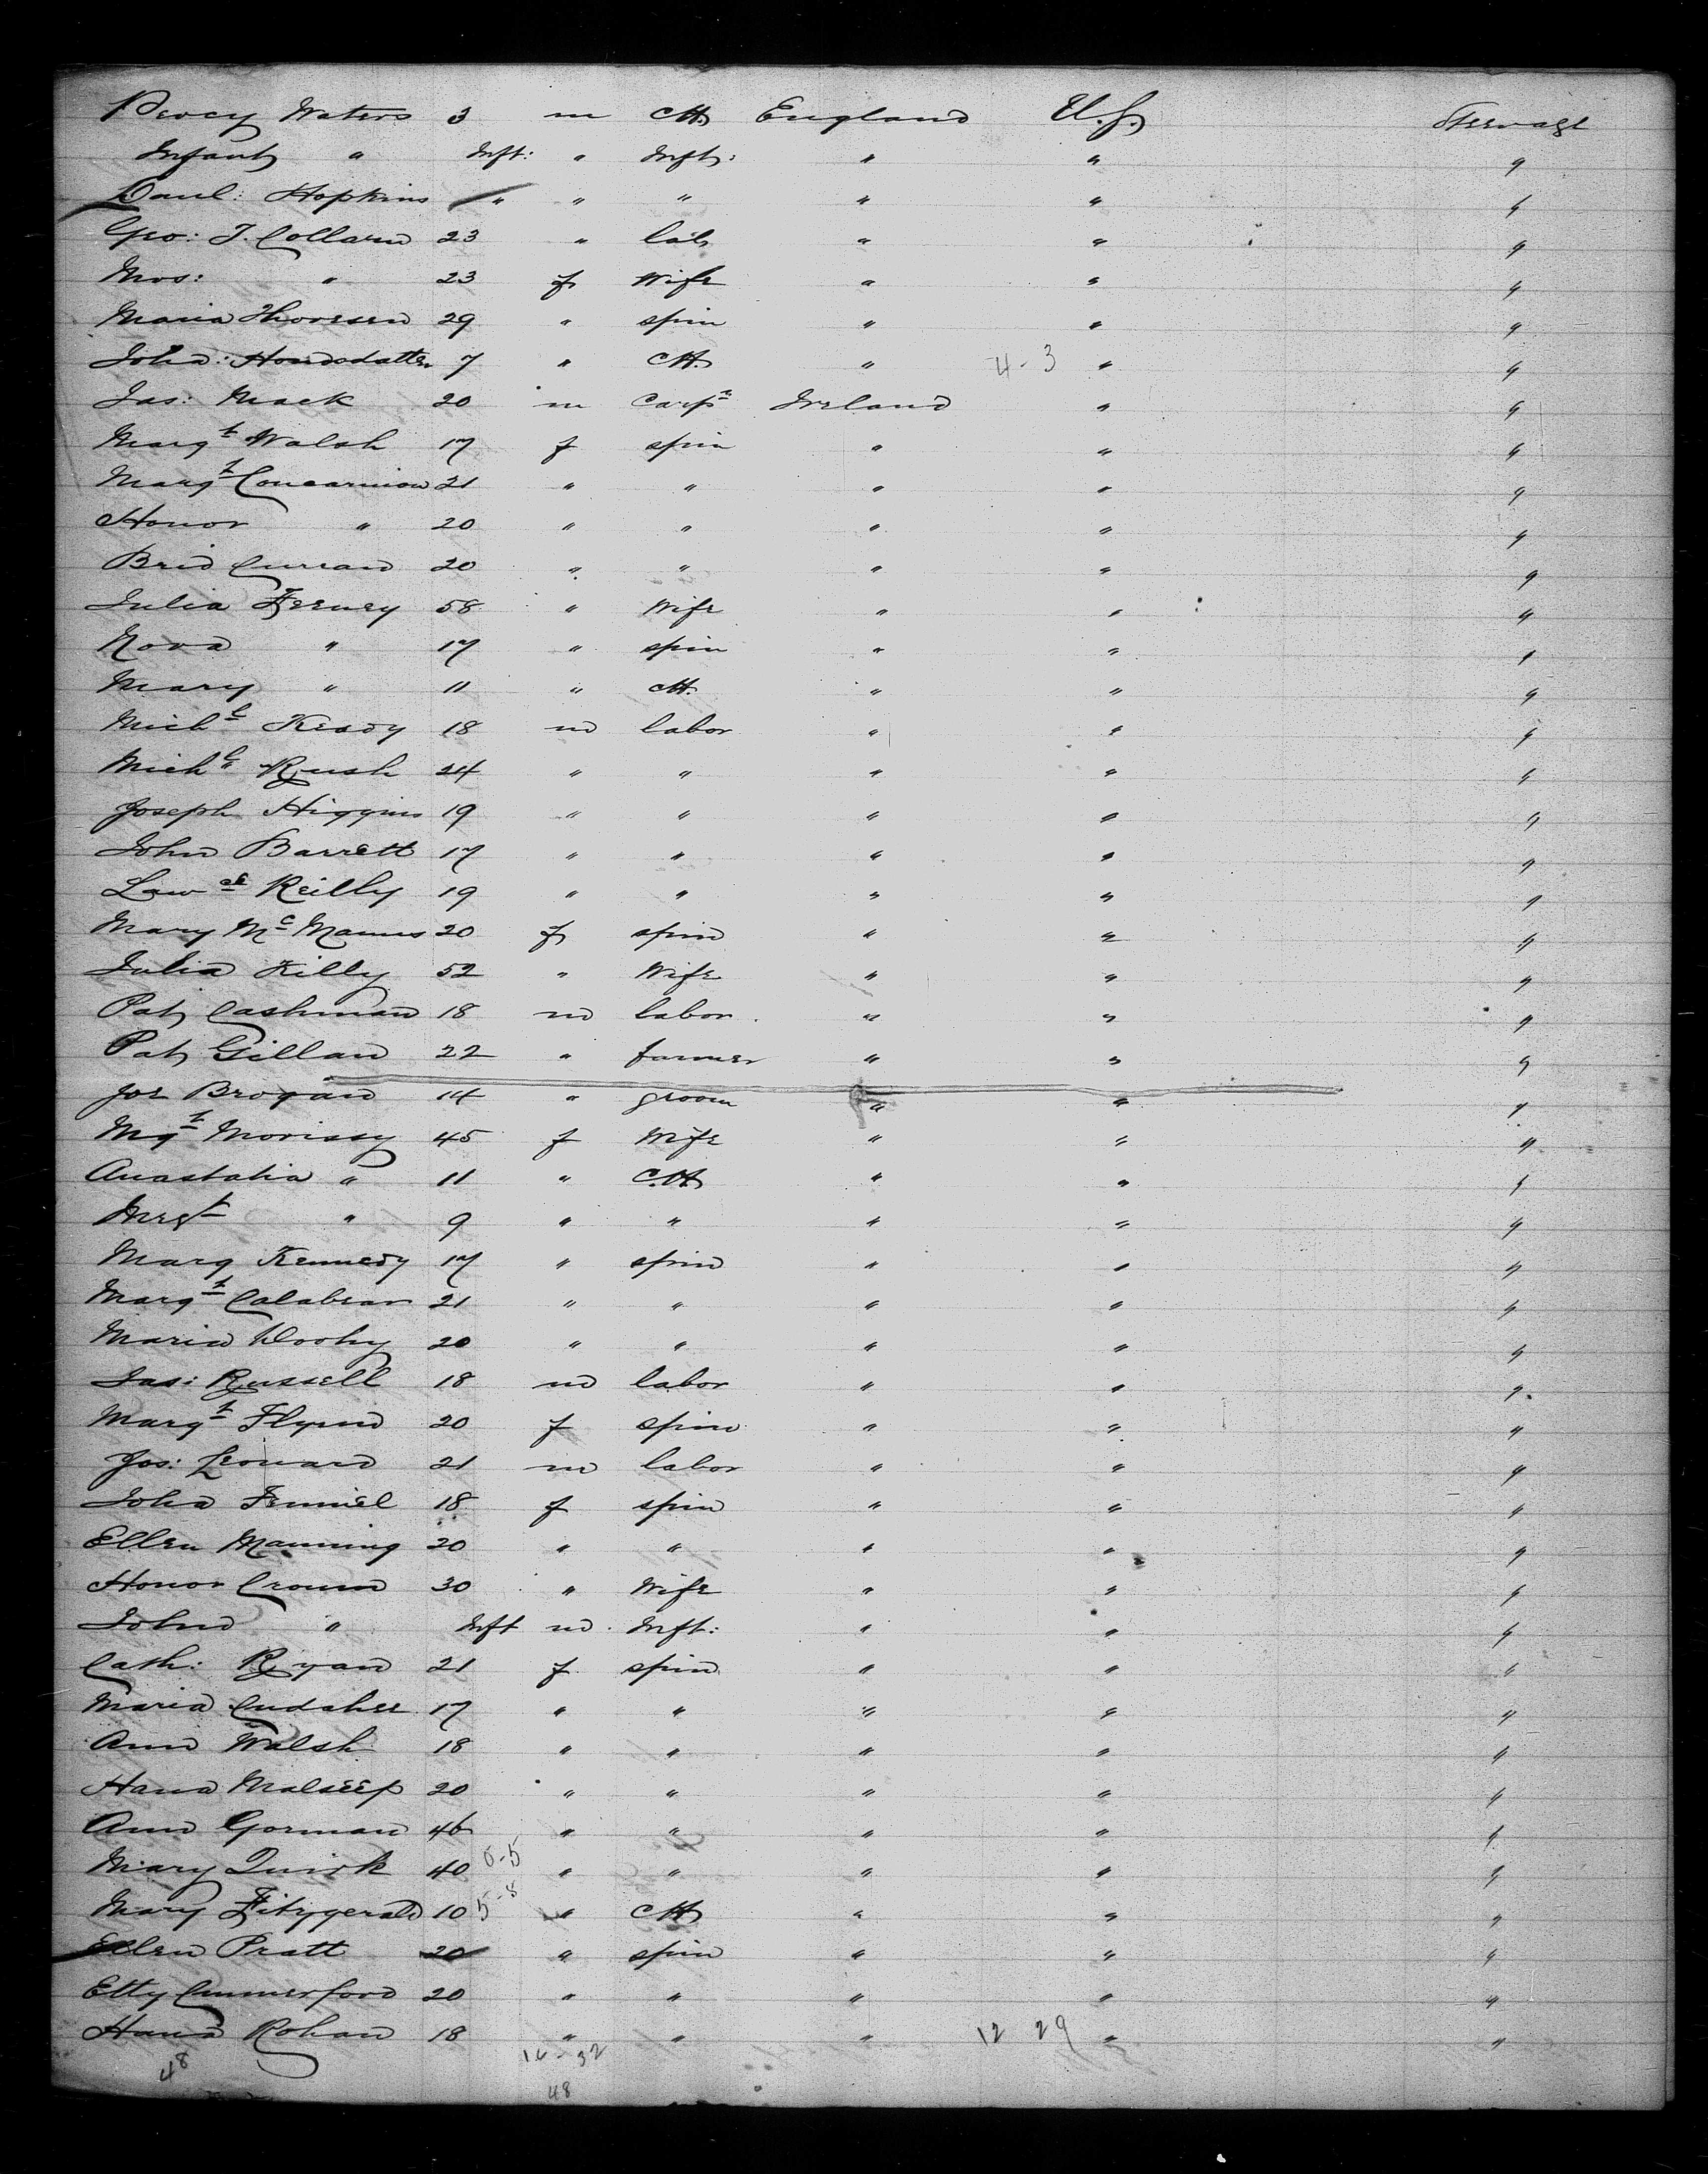 Percy Waters 3 m Ch. England U.S. Steerage
Infant " Inft: " Inft: " " "
Danl: Hopkins " " " " " "
Geo: T. Collarn 23 " lab " " "
Mrs: " 23 f Wife " " "
Maria Thoresen 29 " spin " " "
Joha: 7 " Ch. " 4-3 " "
Jas: Mack 20 m Carpr Ireland " "
Margt Walsh 17 f spin " " "
Margt Concannon 21 " " " " "
Honor " 20 " " " " "
Brid Curran 20 " " " " "
Julia Feeney 58 " Wife " " "
Nora " 17 " spin " " "
Mary " 11 " Ch. " " "
Michl Keady 18 m labor " " "
Michl Rush 24 " " " " "
Joseph Higgins 19 " " " " "
John Barrett 17 " " " " "
Lawce Reilly 19 " " " " "
Mary McManus 20 f spin " " "
Julia Killy 52 " Wife " " "
Pat Cashman 18 m labor " " "
Pat Gillan 22 " farmer " " "
Jos Brogan 14 " groom " " "
Mgt Morissy 45 f Wife " " "
Anastatia " 11 " Ch " " "
Mrgt " 9 " " " " "
Marg Kennedy 17 " spin " " "
Margt 21 " " " " "
Maria Doohy 20 " " " " "
Jas: Russell 18 m labor " " "
Margt Flynn 20 f spin " " "
Jos: Leonard 21 m labor " " "
Joha Fenniel 18 f spin " " "
Ellen Manning 20 " " " " "
Honor Cronin 30 " Wife " " "
John " Inft m Inft: " " "
Cath: Ryan 21 f spin " " "
Maria Cudahee 17 " " " " "
Ann Walsh 18 " " " " "
Hana 20 " " " " "
Ann Gorman 46 " " " " "
Mary Quirk 40 6-5 " " " " "
Mary Fitzgerald 10 5-8 " Ch " " "
Ellen Pratt 20 " spin " " "
Etty Cummerford 20 " " " " "
Hana Rohan 18 " " " 12 29 " "
48 16-32
48